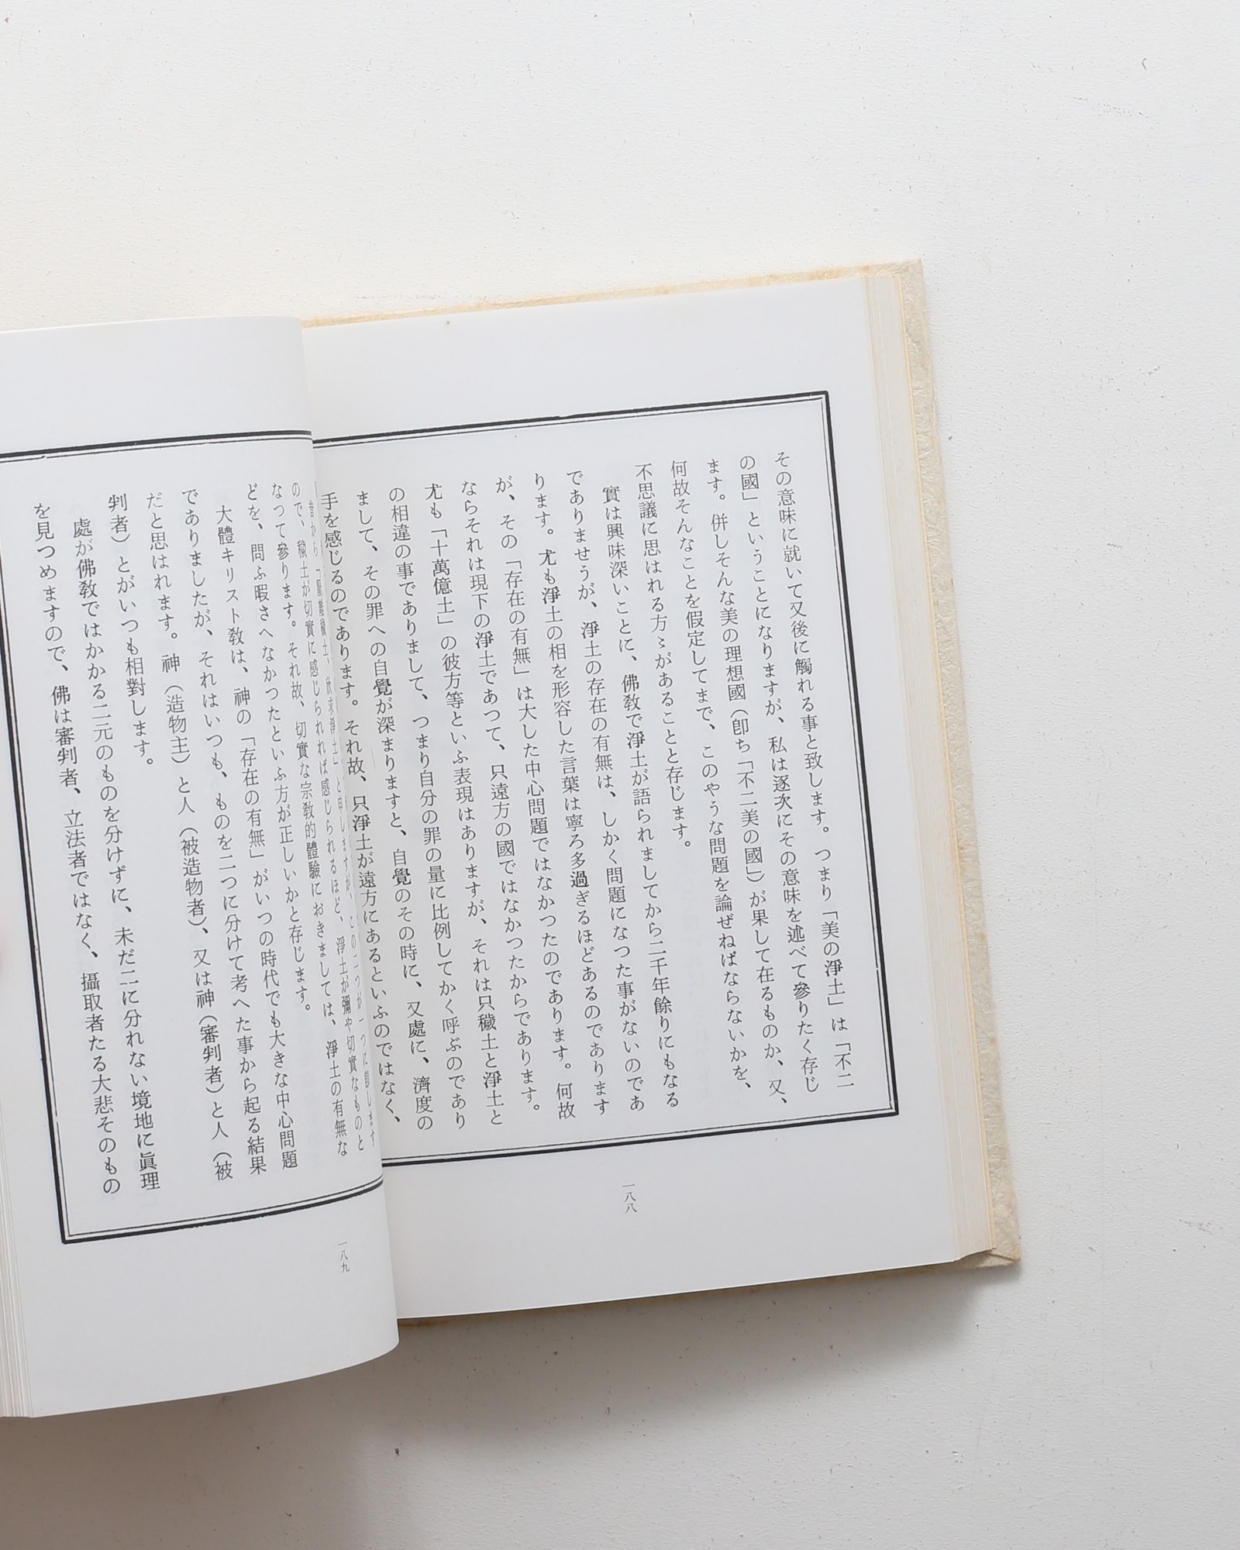 その意味に就いて又後に觸れる事と致します。つまり「美の淨土」は「不二
の國」ということになりますが、私は逐次にその意味を述べて參りたく存じ
ます。併しそんな美の理想國(卽ち「不二美の國」)が果して在るものか、又、
何故そんなことを假定してまで、このやうな問題を論ぜねばならないかを、
不思議に思はれる方〻があることと存じます。
實は興味深いことに、佛敎で淨土が語られましてから二千年餘りにもなる
でありませうが、淨土の存在の有無は、しかく問題になつた事がないのであ
ります。尤も淨土の相を形容した言葉は寧ろ多過ぎるほどあるのであります
が、その「存在の有無」は大した中心問題ではなかつたのであります。何故
ならそれは現下の淨土であつて、只遠方の國ではなかつたからであります。
尤も「十萬億土」の彼方等といふ表現はありますが、それは只穢土と淨土と
の相違の事でありまして、つまり自分の罪の量に比例してかく呼ぶのであり
まして、その罪への自覺が深まりますと、自覺のその時に、又處に、濟度の
手を感じるのであります。それ故、只淨土が遠方にあるといふのではなく、
一八八
昔から「厭離穢土、欣求淨土」と申しますが、この二つが一つに卽します
ので、穢土が切實に感じられれば感じられるほど、淨土が彌や切實なものと
なつて參ります。それ故、切實な宗敎的體驗におきましては、淨土の有無な
どを、問ふ暇さへなかつたといふ方が正しいかと存じます。
大體キリスト敎は、神の「存在の有無」がいつの時代でも大きな中心問題
でありましたが、それはいつも、ものを二つに分けて考へた事から起る結果
だと思はれます。神(造物主)と人(被造物者)、又は神(審判者)と人(被
判者)とがいつも相對します。
處が佛敎ではかかる二元のものを分けずに、未だ二に分れない境地に眞理
を見つめますので、佛は審判者、立法者ではなく、攝取者たる大悲そのもの
一八九